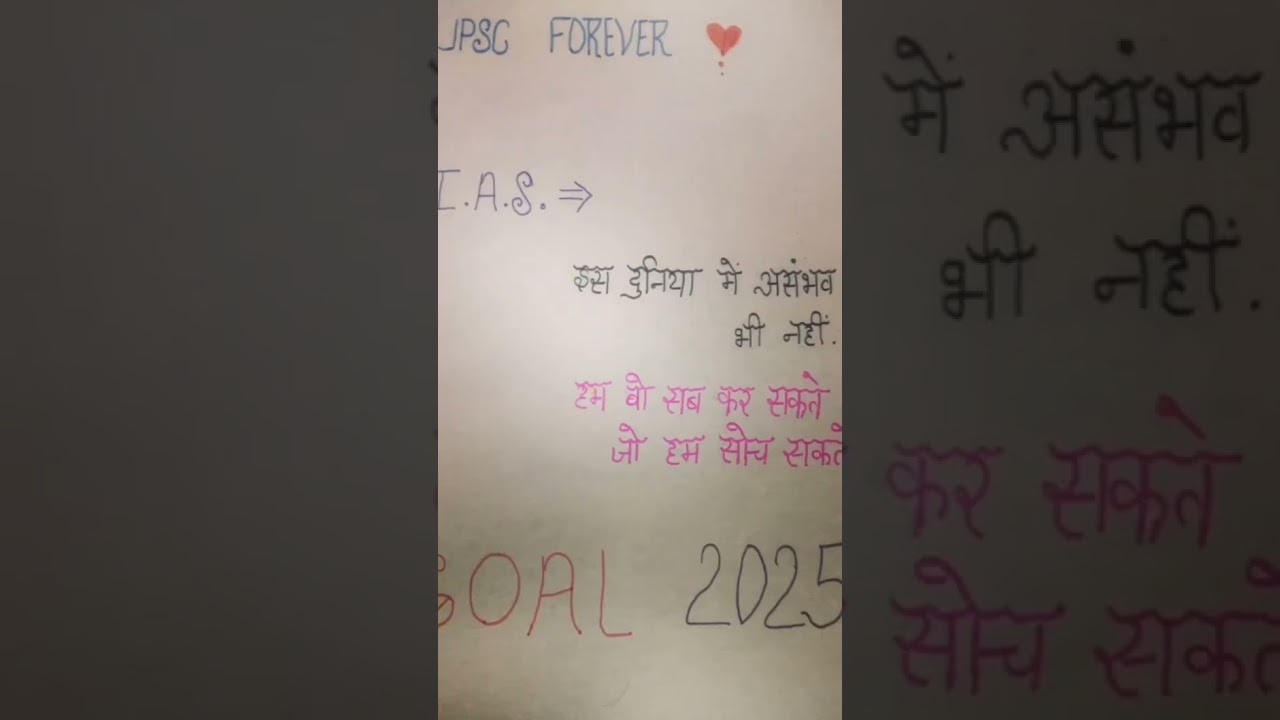 UPSC FOREVER
I.A.S. ⇒
इस दुनिया में असंभव
भी नहीं.
हम बो सब कर सकते
जो हम सोच सकते
GOAL 2025